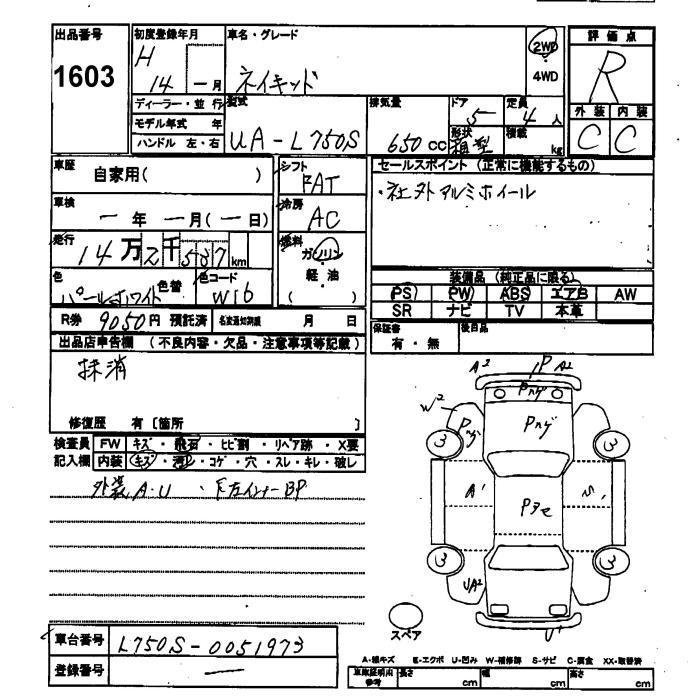 出品番号 初度登録年月 車名・グレード 2WD 評価点
1603 H 14 年 一月 ネイキッド 4WD R
ディーラー・並行 型式 排気量 ドア 定員 外装 内装
モデル年式 年 UA-L750S 650cc 5 4人 C C
ハンドル 左・右 形状 箱型 積載 kg
車歴 自家用( ) シフト FAT セールスポイント (正常に機能するもの)
車検 一年 一月(一日) 冷房 AC ・社外アルミホイール
走行 14万2千587km 燃料 ガソリン
色 パールホワイト 色替 色コード W16 軽油 ( ) 装備品 (純正品に限る)
PS PW ABS エアB AW
R券 9050円 預託済 月 日 SR ナビ TV 本革
出品店申告欄 (不良内容・欠品・注意事項等記載) 保証書 有・無 後日品
抹消
修復歴 有〔箇所 〕
検査員 FW キズ・飛石・ヒビ割・リペア跡・X要
記入欄 内装 キズ・汚レ・コゲ・穴・スレ・キレ・破レ
外装A・U
A2 P A2
Pハゲ
W2 Pハゲ Pハゲ
3 3
A1 Pヨセ S1
3 3
UA2
U1
スペア
車台番号 L750S-0051973
登録番号 一
A-線キズ E-エクボ U-凹み W-補修跡 S-サビ C-腐食 XX-取替済
車庫証明用参考 長さ cm 幅 cm 高さ cm